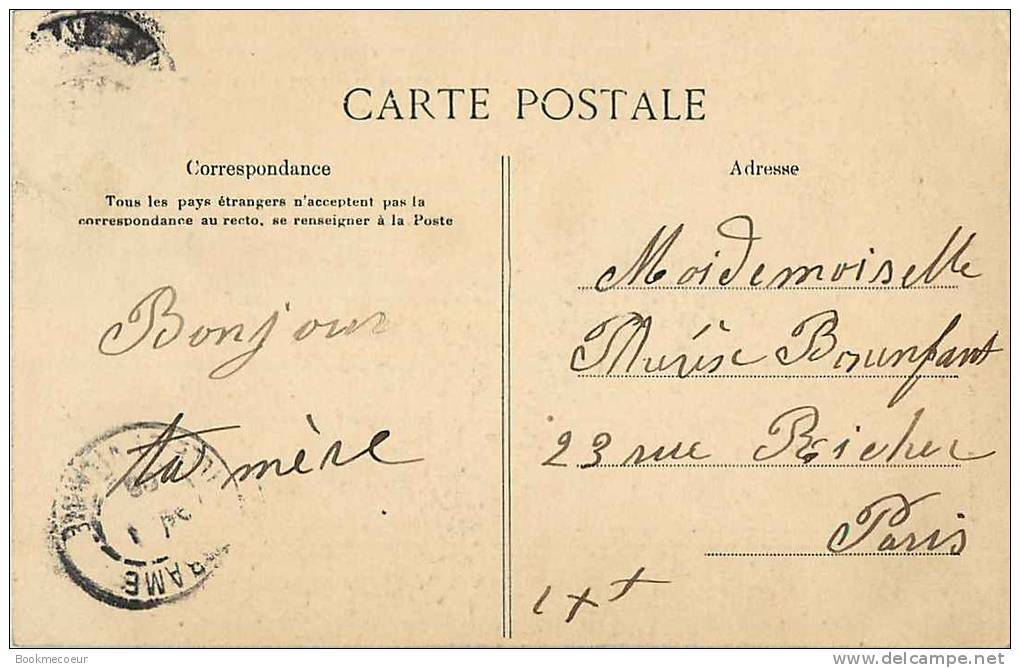 CARTE POSTALE
Correspondance
Tous les pays étrangers n'acceptent pas la
correspondance au recto, se renseigner à la Poste
Bonjour
ta mère
Adresse
Moidemoiselle
Bounfant
23 rue Richer
Paris
RAME
Bookmecoeur
delcampe.net